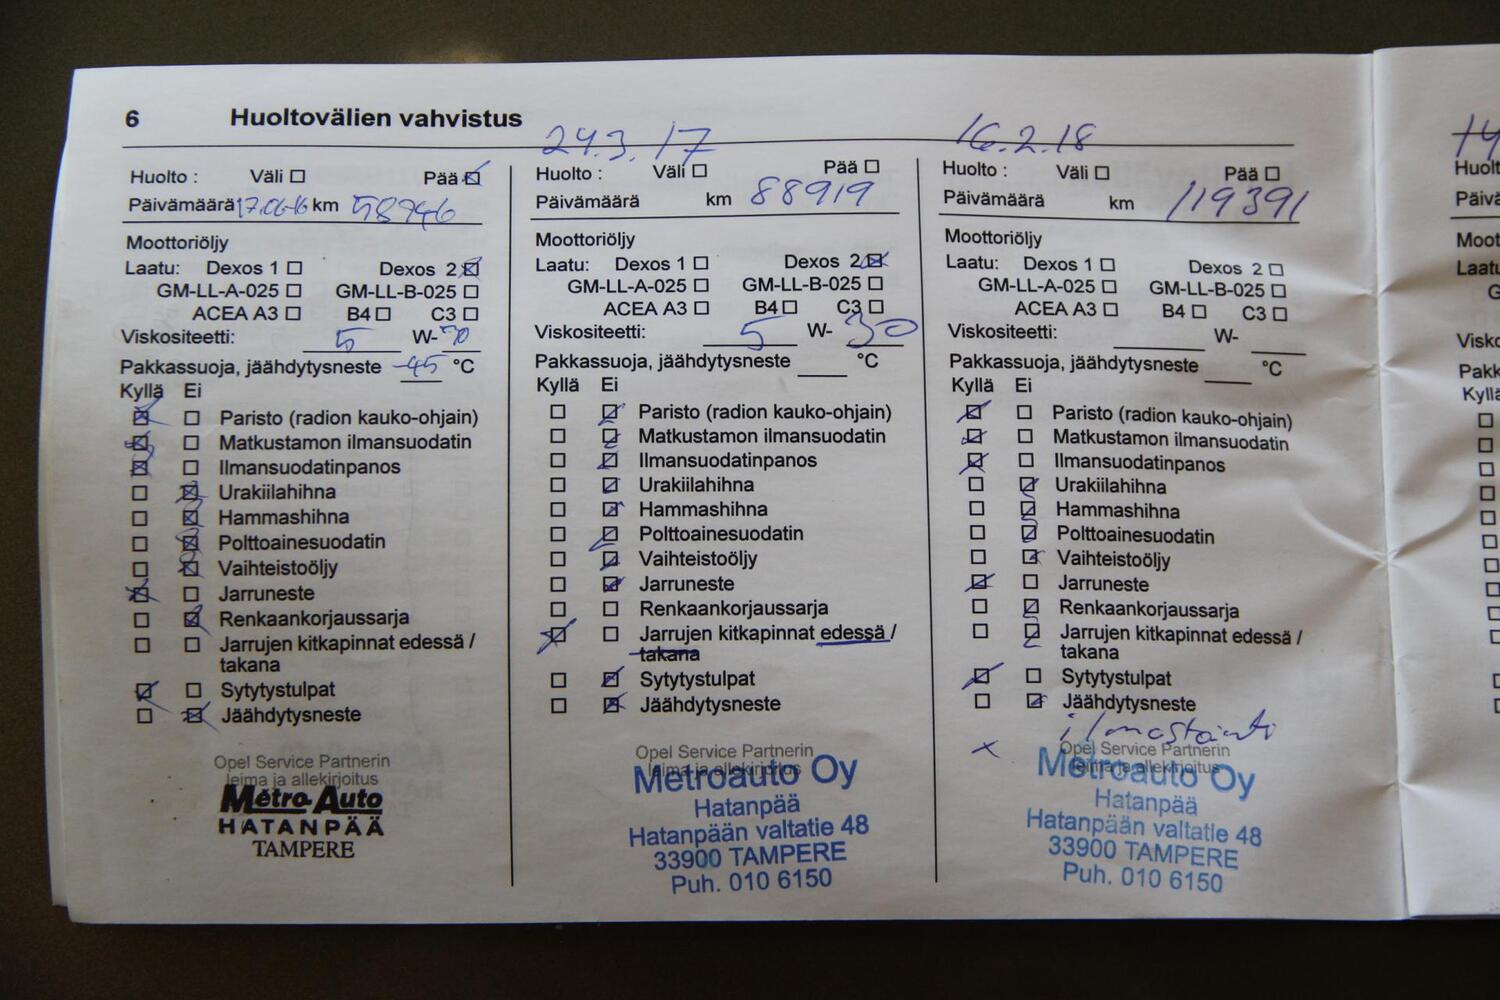 6 Huoltovälien vahvistus
Huolto : Väli Pää
Päivämäärä 17.06.16 km 58946
Moottoriöljy
Laatu: Dexos 1 Dexos 2
GM-LL-A-025 GM-LL-B-025
ACEA A3 B4 C3
Viskositeetti: 5 W-30
Pakkassuoja, jäähdytysneste -45 °C
Kyllä Ei
Paristo (radion kauko-ohjain)
Matkustamon ilmansuodatin
Ilmansuodatinpanos
Urakiilahihna
Hammashihna
Polttoainesuodatin
Vaihteistoöljy
Jarruneste
Renkaankorjaussarja
Jarrujen kitkapinnat edessä /
takana
Sytytystulpat
Jäähdytysneste
Opel Service Partnerin
leima ja allekirjoitus
Metro-Auto
HATANPÄÄ
TAMPERE
24.3.17
Huolto : Väli Pää
Päivämäärä km 88919
Moottoriöljy
Laatu: Dexos 1 Dexos 2
GM-LL-A-025 GM-LL-B-025
ACEA A3 B4 C3
Viskositeetti: 5 W- 30
Pakkassuoja, jäähdytysneste °C
Kyllä Ei
Paristo (radion kauko-ohjain)
Matkustamon ilmansuodatin
Ilmansuodatinpanos
Urakiilahihna
Hammashihna
Polttoainesuodatin
Vaihteistoöljy
Jarruneste
Renkaankorjaussarja
Jarrujen kitkapinnat edessä /
takana
Sytytystulpat
Jäähdytysneste
Opel Service Partnerin
leima ja allekirjoitus
Metroauto Oy
Hatanpää
Hatanpään valtatie 48
33900 TAMPERE
Puh. 010 6150
16.2.18
Huolto : Väli Pää
Päivämäärä km 119391
Moottoriöljy
Laatu: Dexos 1 Dexos 2
GM-LL-A-025 GM-LL-B-025
ACEA A3 B4 C3
Viskositeetti: W-
Pakkassuoja, jäähdytysneste °C
Kyllä Ei
Paristo (radion kauko-ohjain)
Matkustamon ilmansuodatin
Ilmansuodatinpanos
Urakiilahihna
Hammashihna
Polttoainesuodatin
Vaihteistoöljy
Jarruneste
Renkaankorjaussarja
Jarrujen kitkapinnat edessä /
takana
Sytytystulpat
Jäähdytysneste
x ilmastointi
Opel Service Partnerin
leima ja allekirjoitus
Metroauto Oy
Hatanpää
Hatanpään valtatie 48
33900 TAMPERE
Puh. 010 6150
14